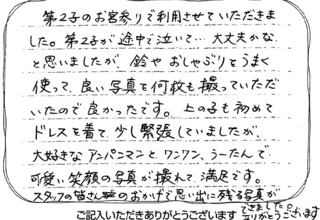 第2子のお宮参りで利用させていただきま
した。第2子が途中で泣いて…大丈夫かな
と思いましたが、鈴やおしゃぶりをうまく
使って、良い写真を何枚も撮っていただ
いたので良かったです。上の子も初めて
ドレスを着て、少し緊張していましたが、
大好きなアンパンマンとワンワン、うーたんで
可愛い笑顔の写真が撮れて、満足です。
スタッフの皆さんのおかげで思い出に残る写真が
できました。
ありがとうございます
ご記入いただきありがとうございます